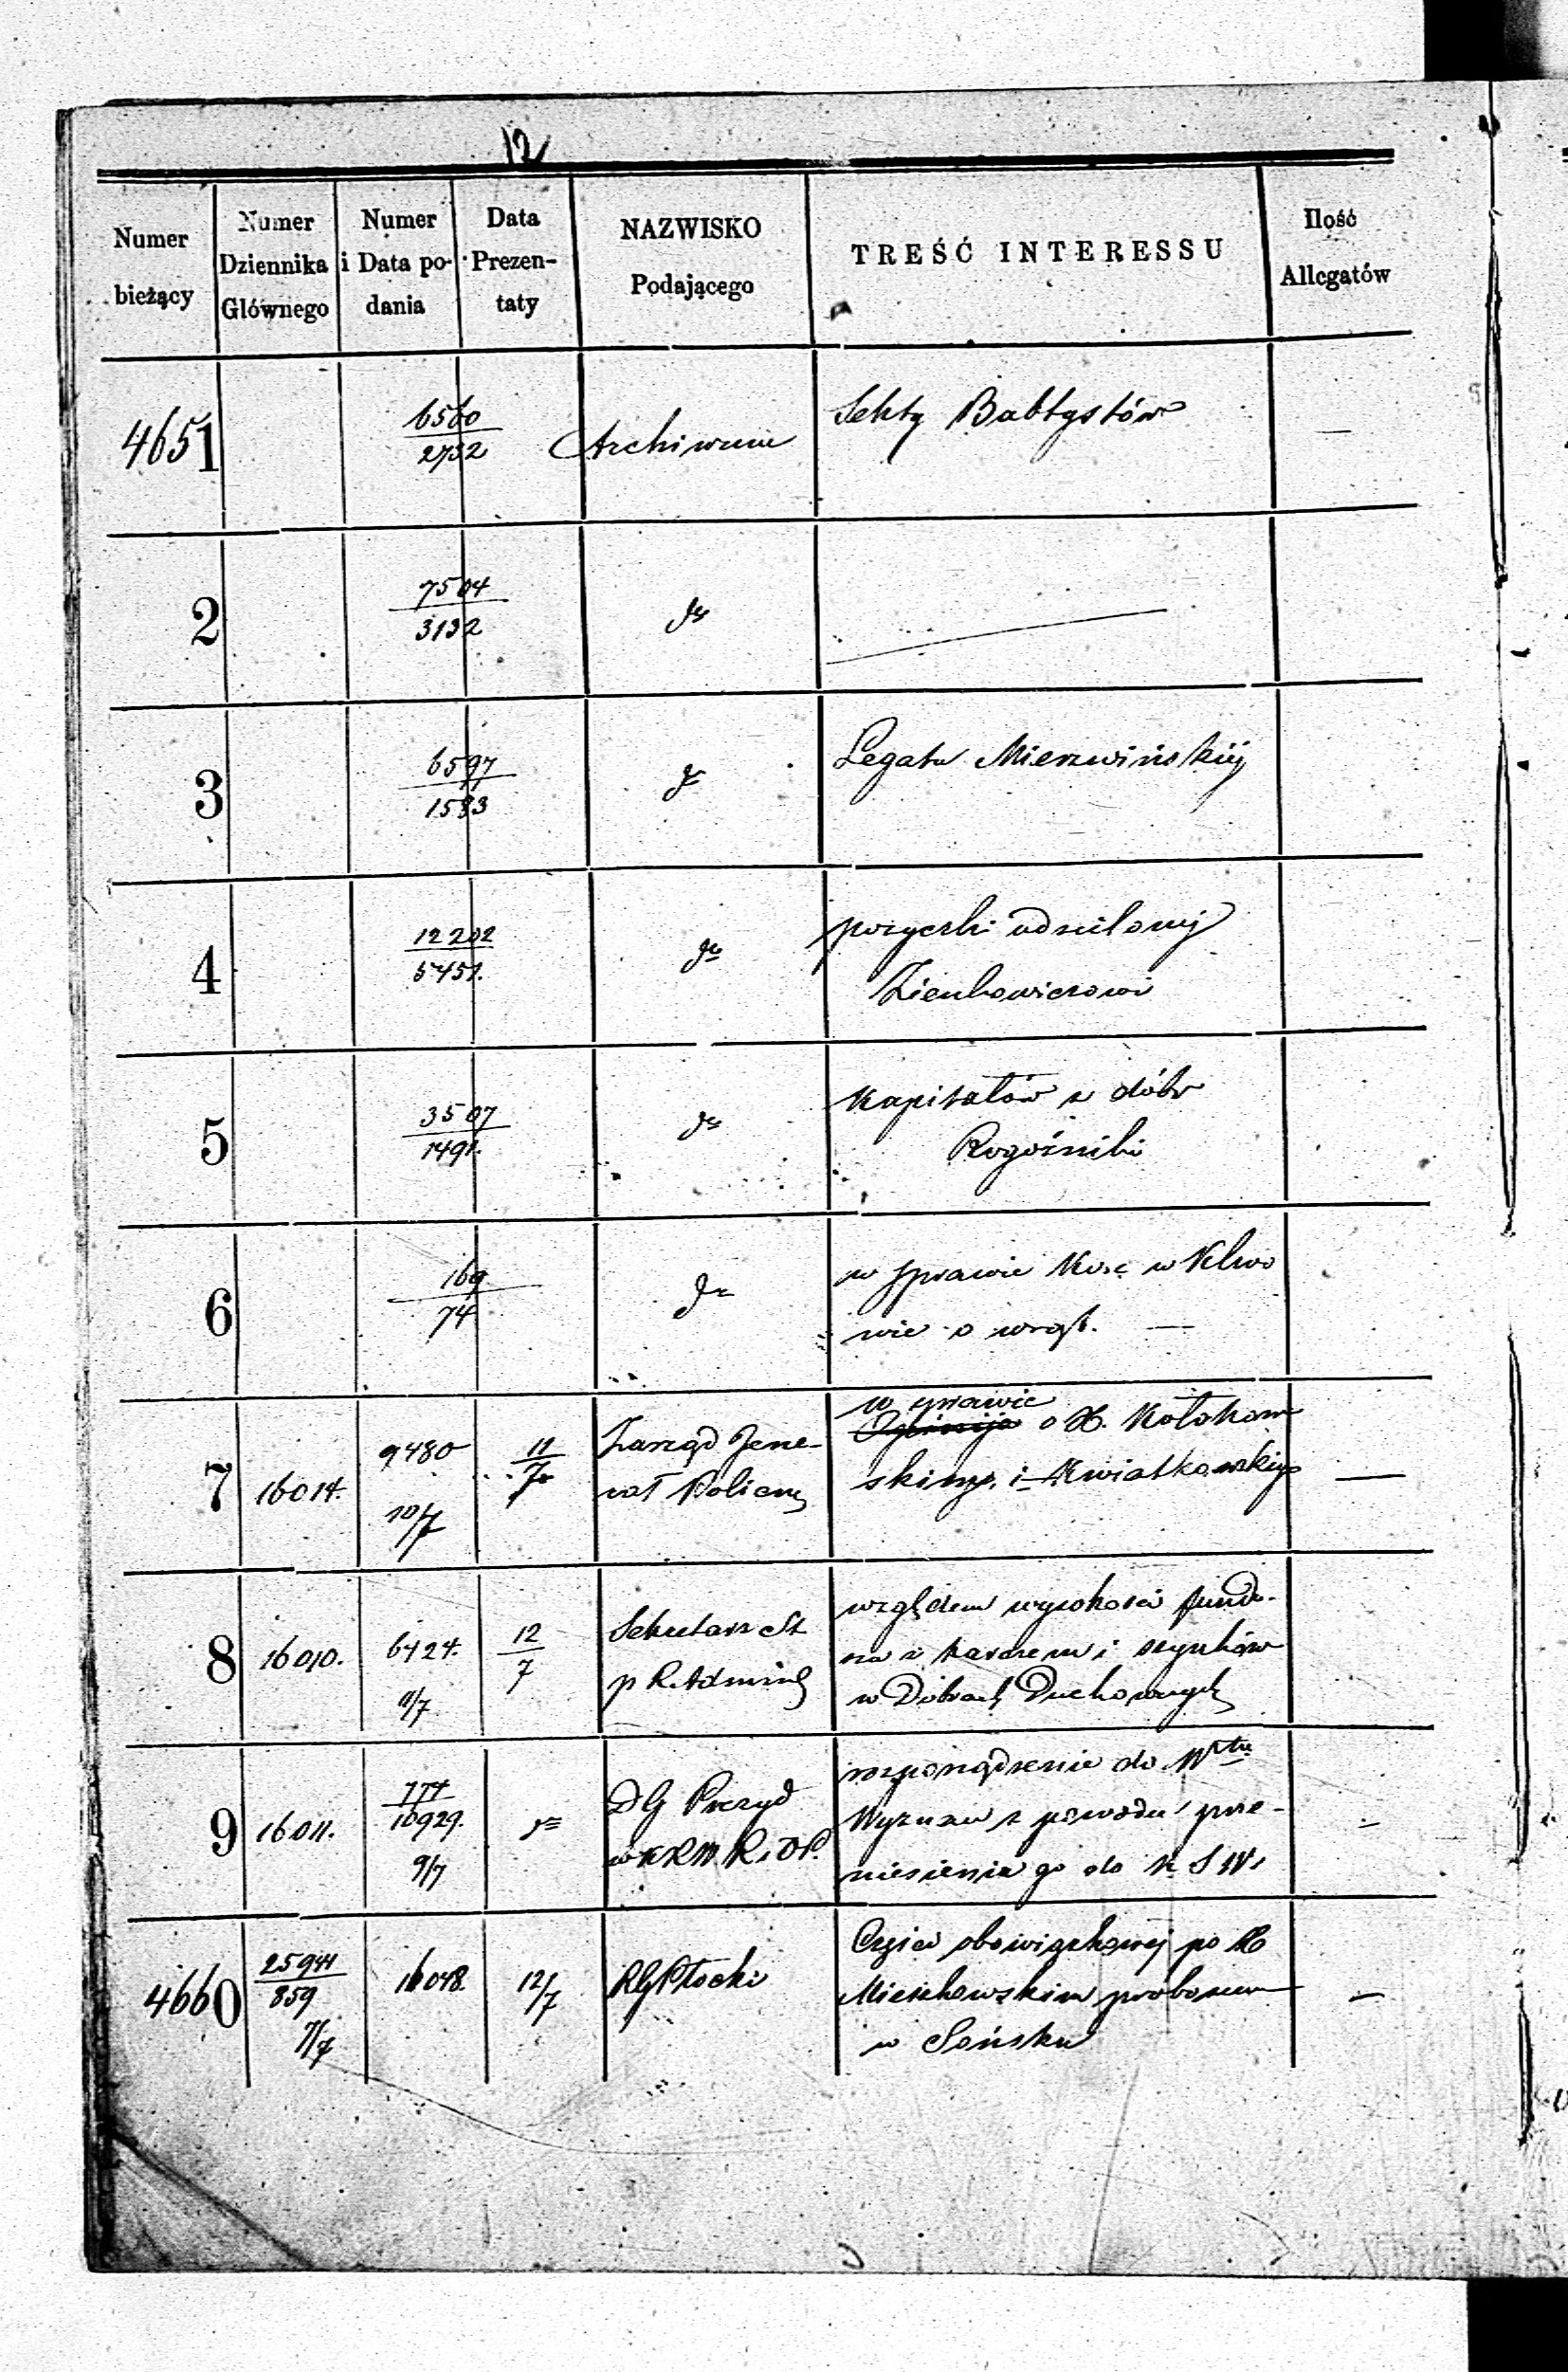 12
Numer bieżący
Numer Dziennika Głównego
Numer i Data podania
Data Prezentaty
NAZWISKO Podającego
TREŚĆ INTERESSU
Ilość Allegatów
4651 6560/2732 Archiwum Sekty Babtystów —
2 7504/3132 do —
3 6597/1583 do Legatu Mierzwińskiij
4 12202/5451. do pożyczki udzielonej
Zienkowiczowi
5 3507/1491. do Kapitałów z dóbr
Rogoźniki
6 169/74 do w sprawie Kosc w Klwo
wie o wrąb. —
7 16014. 9480 10/7 11/7 Zarząd Jene-
rał Policyi
w sprawie
o X. Kotokow
skimy. i Kwiatkowskiego —
8 16010. 6424. 9/7 12/7 Sekretarz St
p R. Admin
względem wysokości fundu-
szu z karczem i szynków
w Dobrach Duchownych
9 16011. 774/10929. 9/7 do DG Prezyd
w KRW R. i OP.
rozporządzenie do
Wyznań z powodu prze-
niesienia go do K S W. —
4660 25944/859 7/7 16048. 12/7 RG Płocki
Części obowiązkowej po X
Mierzkowskim proboszczu
w Sońsku —